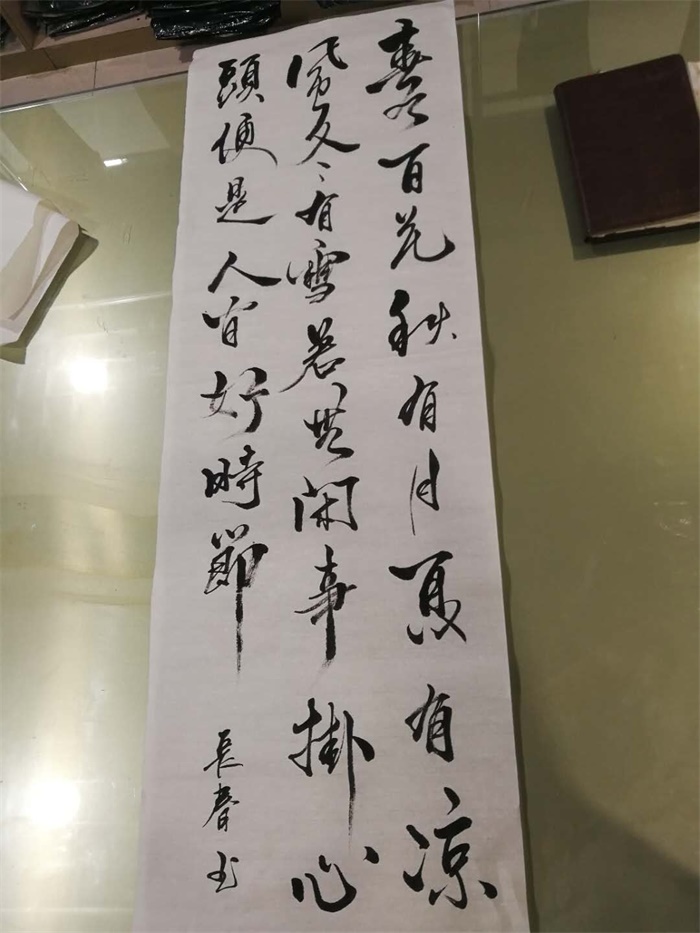 春有百花秋有月夏有凉
風冬有雪若無闲事掛心
頭便是人间好時節
長春书